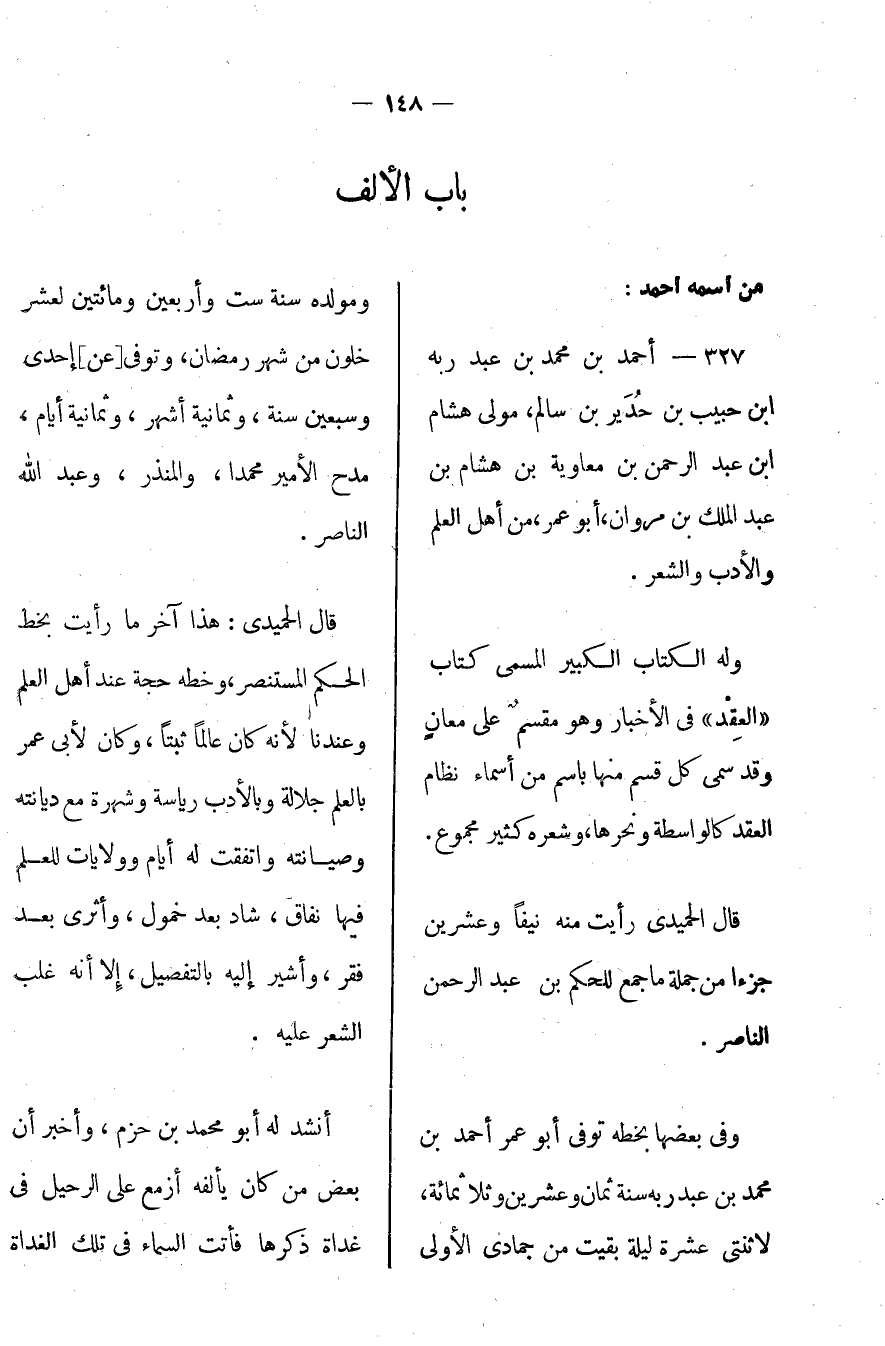 — ١٤٨ —
باب الألف
من اسمه أحمد :
٣٢٧ — أحمد بن محمد بن عبد ربه
ابن حبيب بن حُدَير بن سالم، مولى هشام
ابن عبد الرحمن بن معاوية بن هشام بن
عبد الملك بن مروان،أبو عمر،من أهل العلم
والأدب والشعر .
وله الكتاب الكبير المسمى كتاب
«العِقْد» فى الأخبار وهو مقسم على معانٍ
وقد سمى كل قسم منها باسم من أسماء نظام
العقد كالواسطة ونحرها،وشعره كثير مجموع.
قال الحميدى رأيت منه نيفاً وعشرين
جزءا من جملة ماجمع للحكم بن عبد الرحمن
الناصر .
وفى بعضها بخطه توفى أبو عمر أحمد بن
محمد بن عبد ربه سنة ثمان وعشرين وثلاثمائة،
لاثنتى عشرة ليلة بقيت من جمادى الأولى
ومولده سنة ست وأربعين ومائتين لعشر
خلون من شهر رمضان، وتوفى[عن]إحدى
وسبعين سنة ، وثمانية أشهر ، وثمانية أيام ،
مدح الأمير محمدا ، والمنذر ، وعبد الله
الناصر .
قال الحميدى : هذا آخر ما رأيت بخط
الحكم المستنصر،وخطه حجة عند أهل العلم
وعندنا لأنه كان عالماً ثبتاً ، وكان لأبى عمر
بالعلم جلالة وبالأدب رياسة وشهرة مع ديانته
وصيانته واتفقت له أيام وولايات للعلم
فيها نفاق ، شاد بعد خمول ، وأثرى بعد
فقر ، وأشير إليه بالتفصيل ، إلا أنه غلب
الشعر عليه .
أنشد له أبو محمد بن حزم ، وأخبر أن
بعض من كان يألفه أزمع على الرحيل فى
غداة ذكرها فأتت السماء فى تلك الغداة